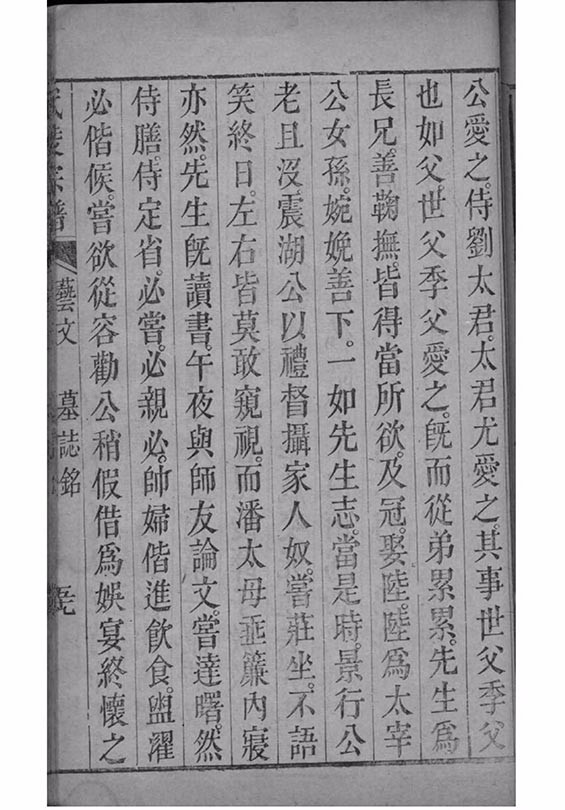 公愛之侍劉太君太君尤愛之其事世父季父
也如父世父季父愛之旣而從弟累累先生爲
長兄善鞠撫皆得當所欲及冠娶陸陸爲太宰
公女孫婉娩善下一如先生志當是時景行公
老且沒震湖公以禮督攝家人奴嘗莊坐不語
笑終日左右皆莫敢窺視而潘太母亟簾內寢
亦然先生旣讀書午夜與師友論文嘗達曙然
侍膳侍定省必嘗必親必帥婦偕進飲食盥濯
必偕候嘗欲從容勸公稍假借爲娛宴終懷之
宗譜 藝文 墓誌銘